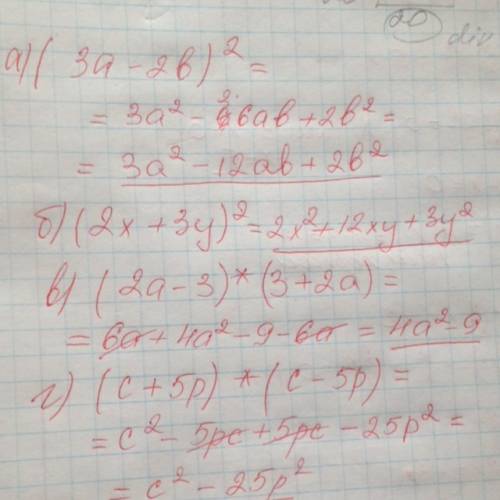 20 div
а) ( 3a - 2b )² =
= 3a² - 2·6ab + 2b² =
= 3a² - 12ab + 2b²
б) (2x + 3y)² = 2x² + 12xy + 3y²
в) ( 2a - 3) * (3 + 2a) =
= 6a + 4a² - 9 - 6a = 4a² - 9
г) (c + 5p) * (c - 5p) =
= c² - 5pc + 5pc - 25p² =
= c² - 25p²